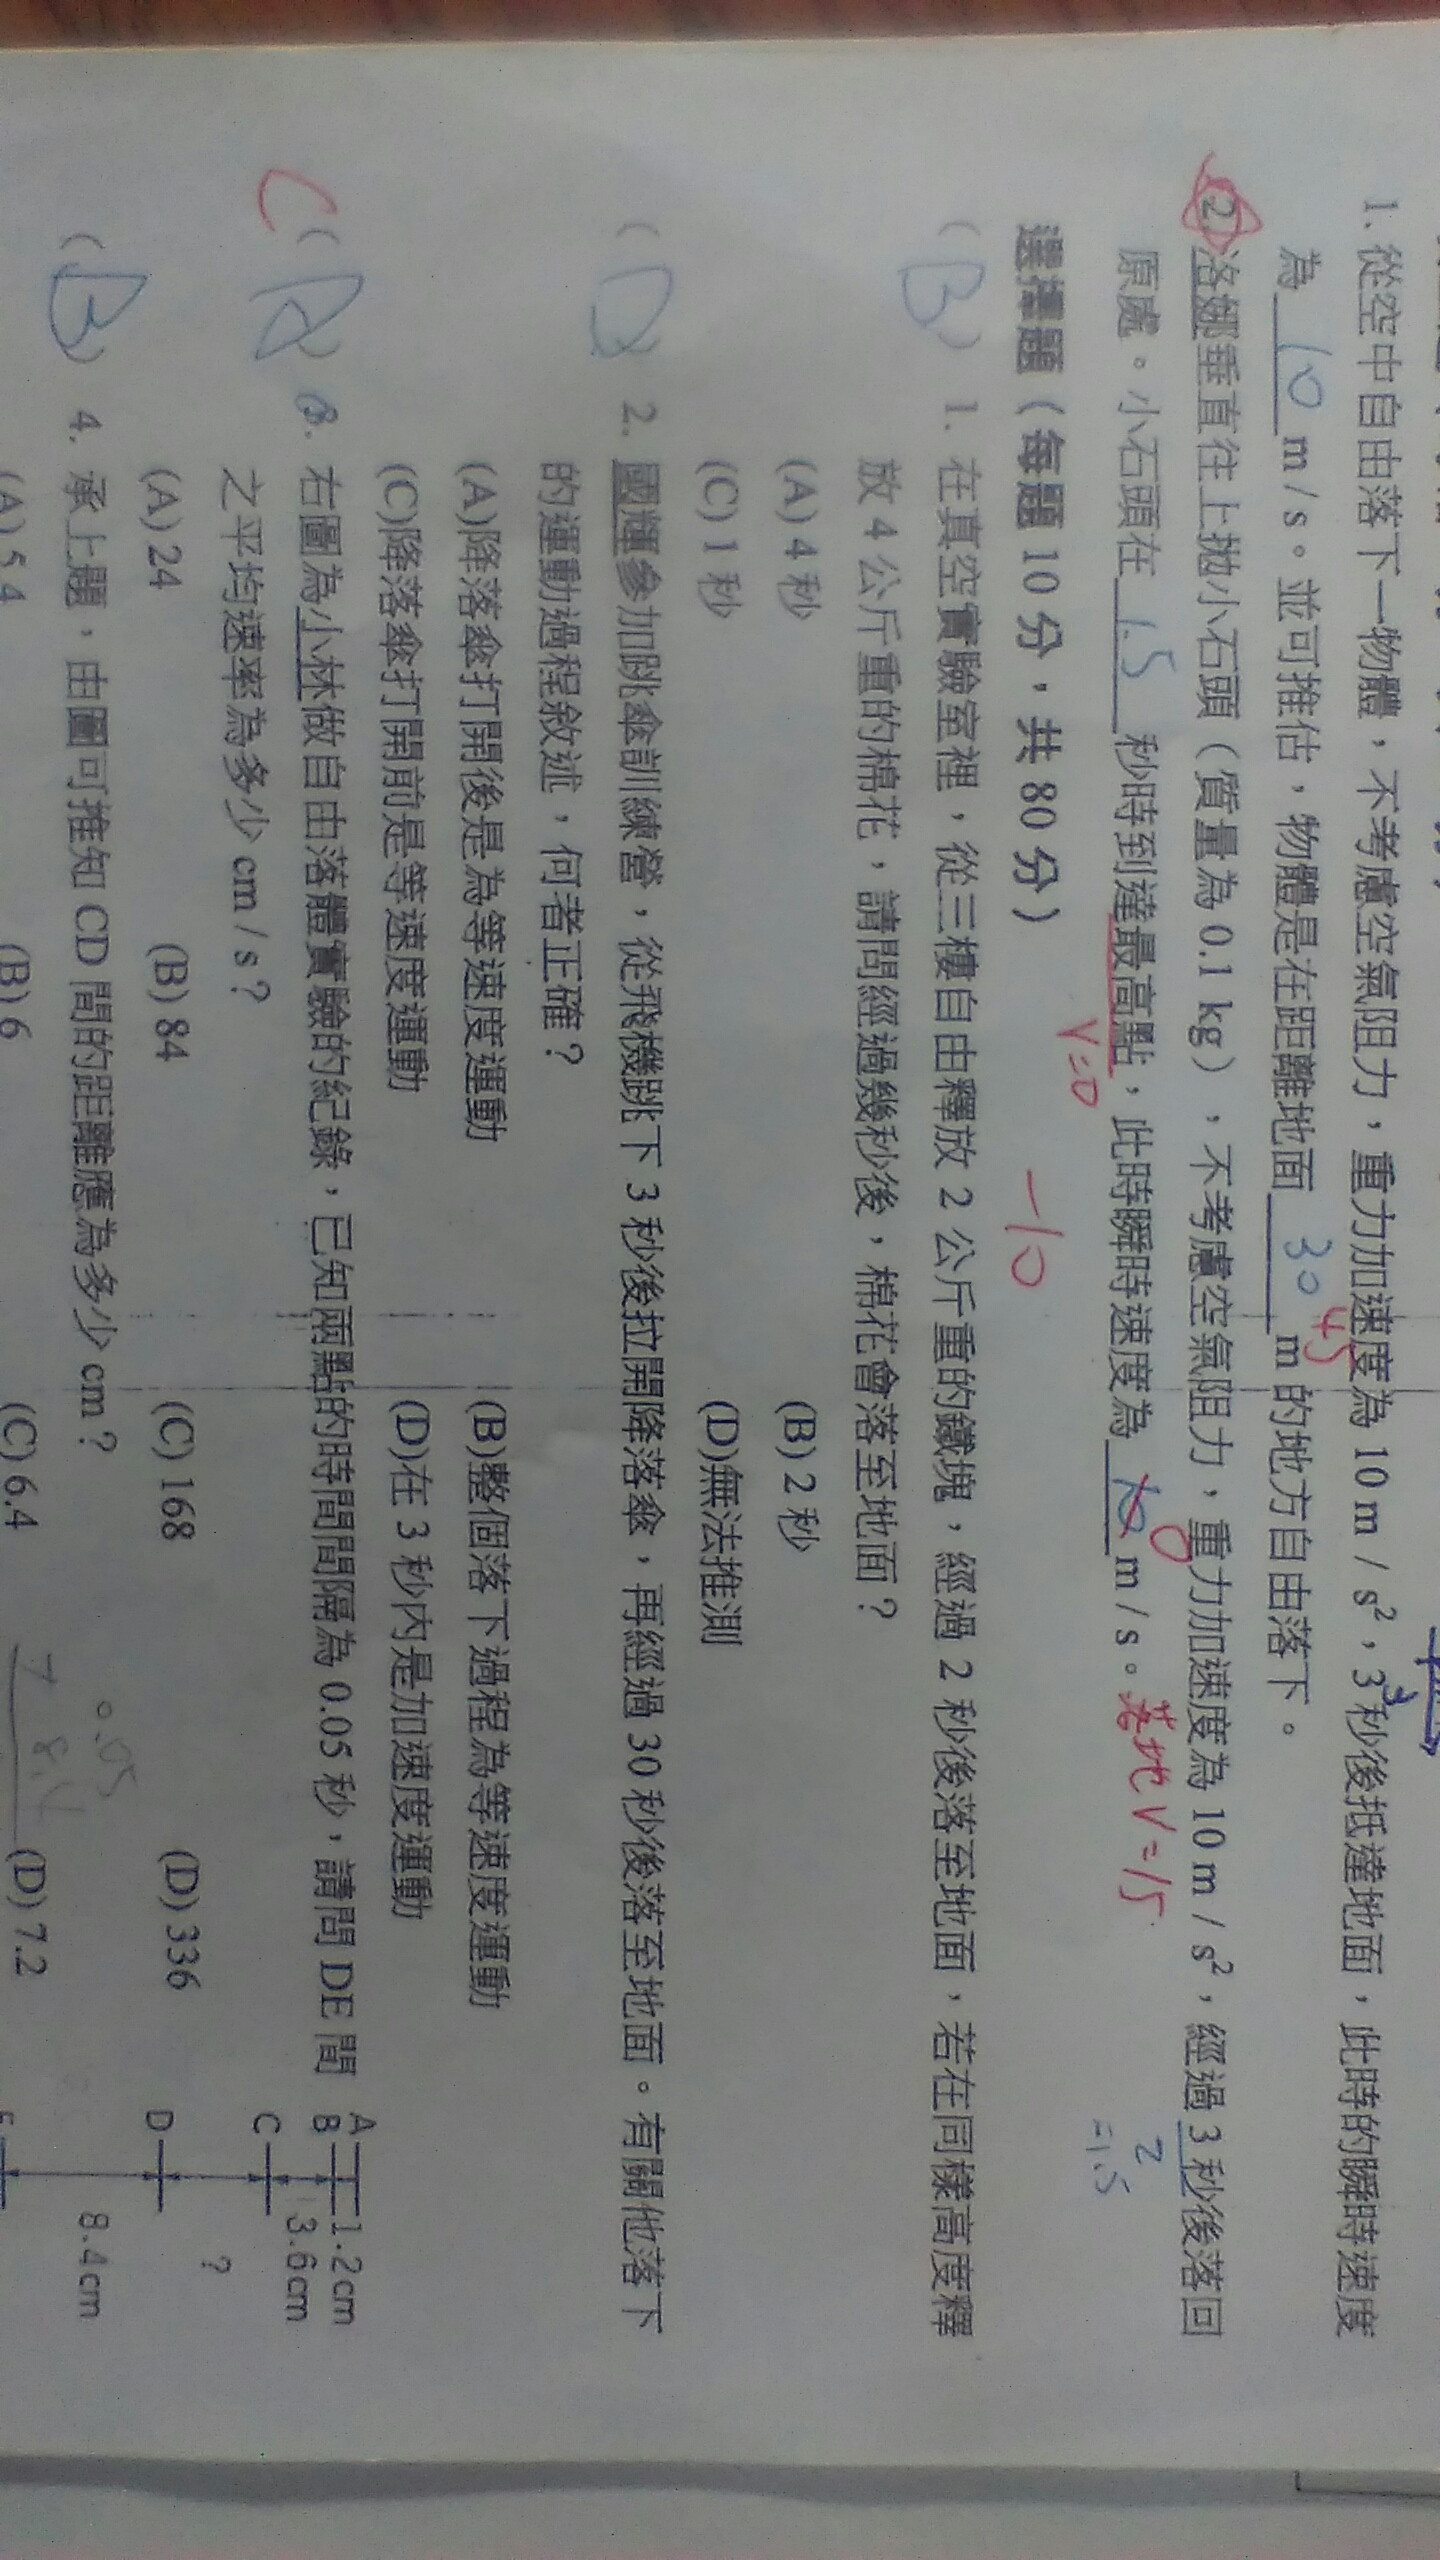 1. 從空中自由落下一物體，不考慮空氣阻力，重力加速度為 10 m / s²，3 秒後抵達地面，此時的瞬時速度
為 10 m / s。並可推估，物體是在距離地面 30 m 的地方自由落下。
45
2. 洛娜垂直往上拋小石頭（質量為 0.1 kg），不考慮空氣阻力，重力加速度為 10 m / s²，經過 3 秒後落回
2
=1.5
原處。小石頭在 1.5 秒時到達最高點，此時瞬時速度為 10 m / s。
0
落地 V=15
V=0
選擇題（每題 10 分，共 80 分）
-10
(B) 1. 在真空實驗室裡，從三樓自由釋放 2 公斤重的鐵塊，經過 2 秒後落至地面，若在同樣高度釋
放 4 公斤重的棉花，請問經過幾秒後，棉花會落至地面？
(A) 4 秒 (B) 2 秒
(C) 1 秒 (D)無法推測
(D) 2. 國輝參加跳傘訓練營，從飛機跳下 3 秒後拉開降落傘，再經過 30 秒後落至地面。有關他落下
的運動過程敘述，何者正確？
(A)降落傘打開後是為等速度運動 (B)整個落下過程為等速度運動
(C)降落傘打開前是等速度運動 (D)在 3 秒內是加速度運動
C
3. 右圖為小林做自由落體實驗的紀錄，已知兩點的時間間隔為 0.05 秒，請問 DE 間
之平均速率為多少 cm / s？
(A) 24 (B) 84 (C) 168 (D) 336
(B) 4. 承上題，由圖可推知 CD 間的距離應為多少 cm？
(A) 5.4 (B) 6 (C) 6.4 (D) 7.2
0.05
A
B
C
D
E
1.2cm
3.6cm
?
8.4cm